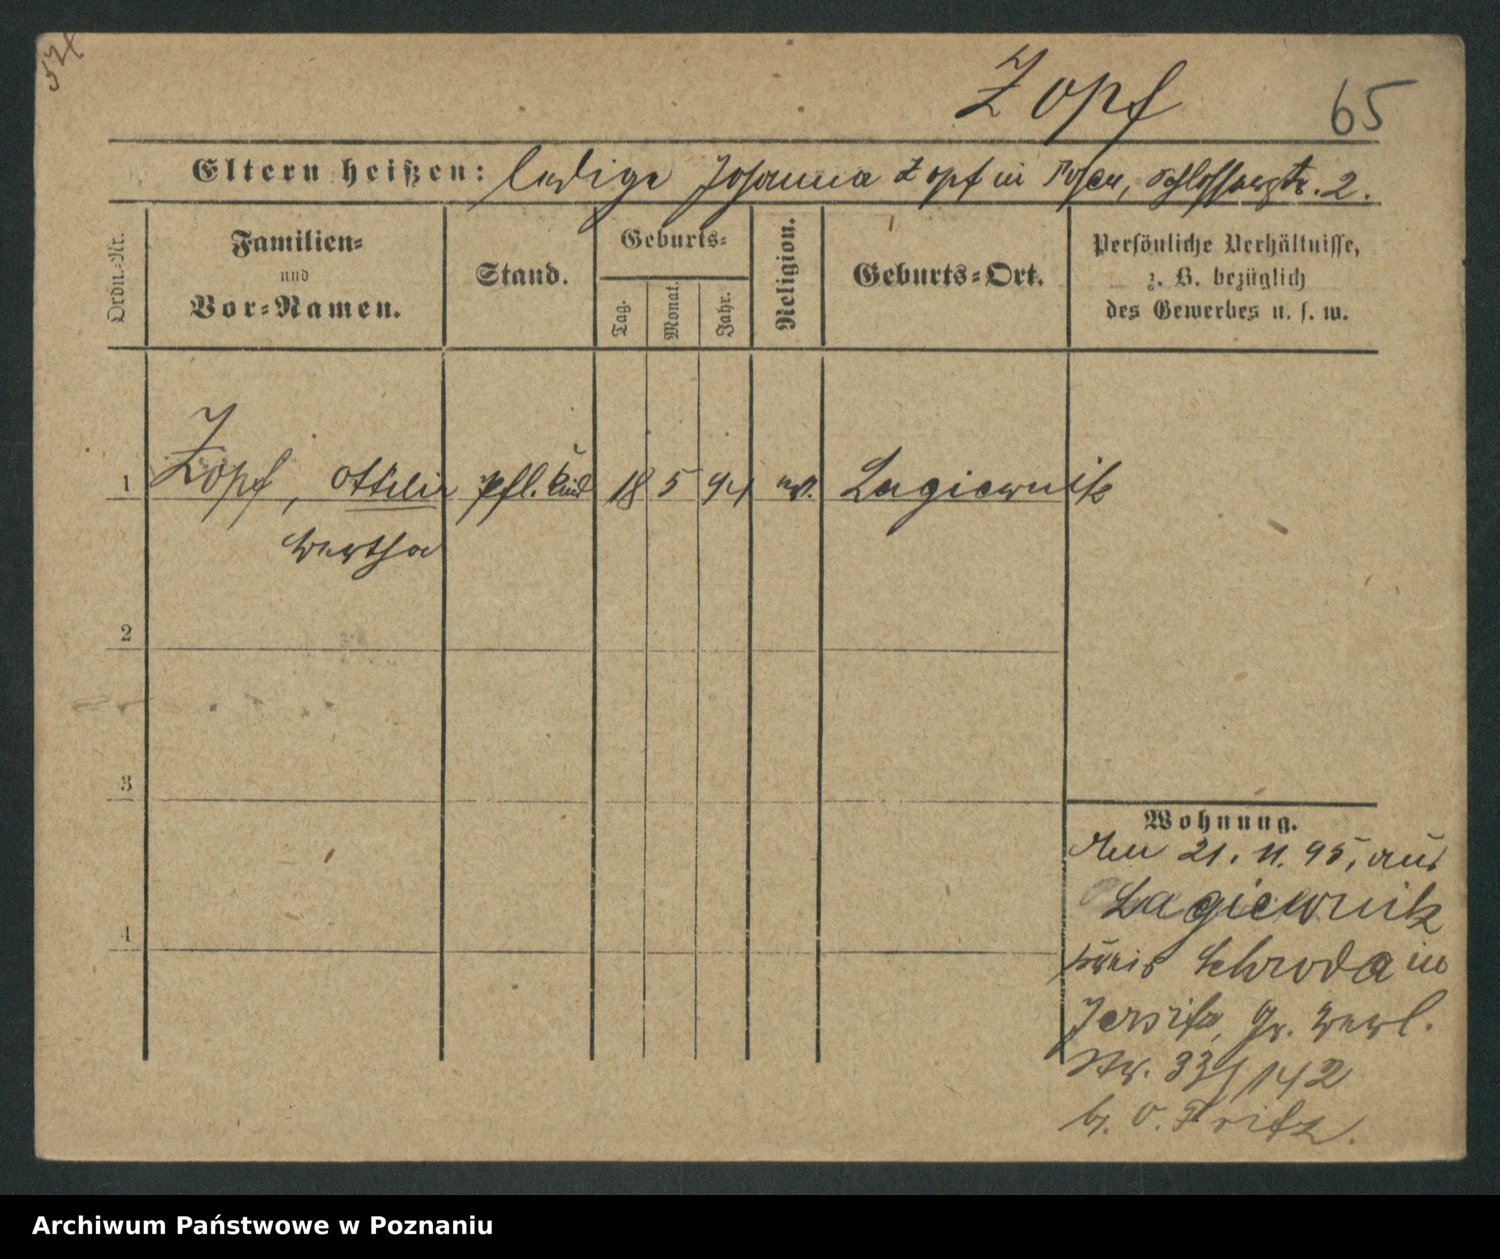 Zopf 65
Eltern heißen: ledige Johanna Zopf in Posen, Schlosserstr. 2.
Ordn.-Nr.
Familien-
und
Vor-Namen.
Stand.
Geburts-
Tag.
Monat.
Jahr.
Religion.
Geburts-Ort.
Persönliche Verhältnisse,
z. B. bezüglich
des Gewerbes u. s. w.
1 Zopf, Ottilie Pfl. Kind 18 5 94 ev. Lagiewnik
Bertha
2
3
4
Wohnung.
Am 21. 11. 95, aus
Lagiewnik
Kreis Schroda in
Jersitz, Gr. Berl.
Str. 33/142
b. O. Fritz.
Archiwum Państwowe w Poznaniu